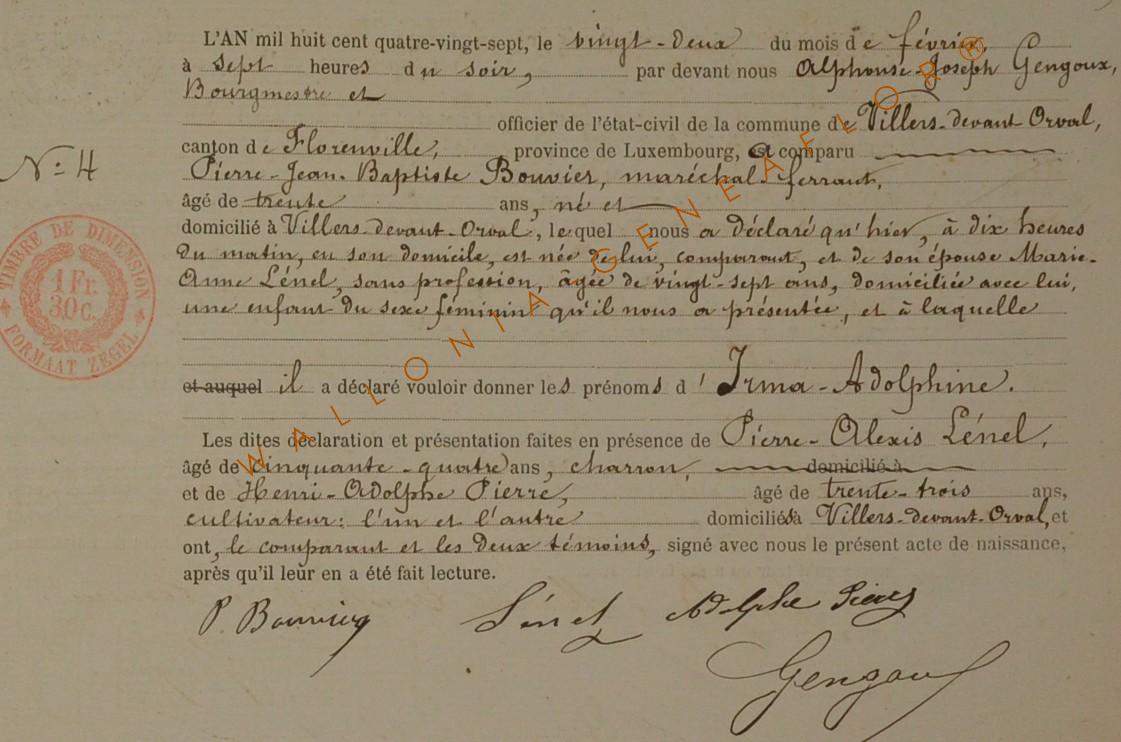 L'AN mil huit cent quatre-vingt-sept, le vingt-deux du mois de février,
à sept heures du soir, par devant nous Alphonse-Joseph Gengoux,
Bourgmestre et
officier de l'état-civil de la commune de Villers-devant-Orval,
canton de Florenville, province de Luxembourg, a comparu
Pierre-Jean-Baptiste Bouvier, maréchal-ferrant,
N° 4
âgé de trente ans, né et
domicilié à Villers-devant-Orval, lequel nous a déclaré qu'hier, à dix heures
du matin, en son domicile, est née de lui, comparant, et de son épouse Marie-
Anne Lénel, sans profession, âgée de vingt-sept ans, domiciliée avec lui,
une enfant du sexe féminin qu'il nous a présentée, et à laquelle
et auquel il a déclaré vouloir donner les prénoms d'Irma-Adolphine.
Les dites déclaration et présentation faites en présence de Pierre-Alexis Lénel,
âgé de cinquante-quatre ans, charron, domicilié à
et de Henri-Adolphe Pierre, âgé de trente-trois ans,
cultivateur; l'un et l'autre domiciliés à Villers-devant-Orval, et
ont, le comparant et les deux témoins, signé avec nous le présent acte de naissance,
après qu'il leur en a été fait lecture.
P. Bouvier Lénel Adolphe Pierre
Gengoux
TIMBRE DE DIMENSION
1 Fr.
30 c.
FORMAAT ZEGEL
WALLONIA GENEAFLOR®